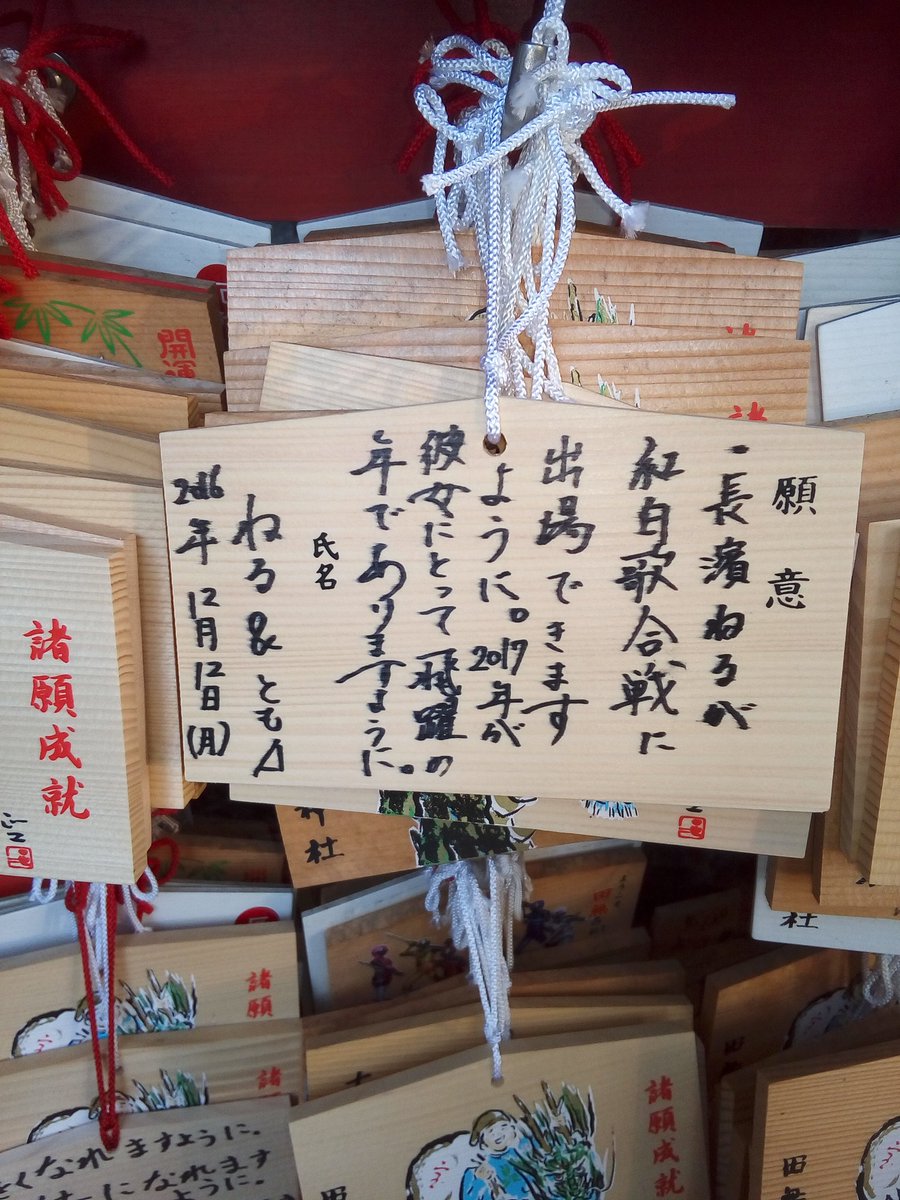 願意
・長濱ねるが
紅白歌合戦に
出場できます
ように。2017年が
彼女にとって飛躍の
年でありますように。
氏名
ねる&とも
2016年12月12日(月)
開運
諸願成就
神社
諸願
諸願
諸願成就
くなれますように。
になれます
ように。
社